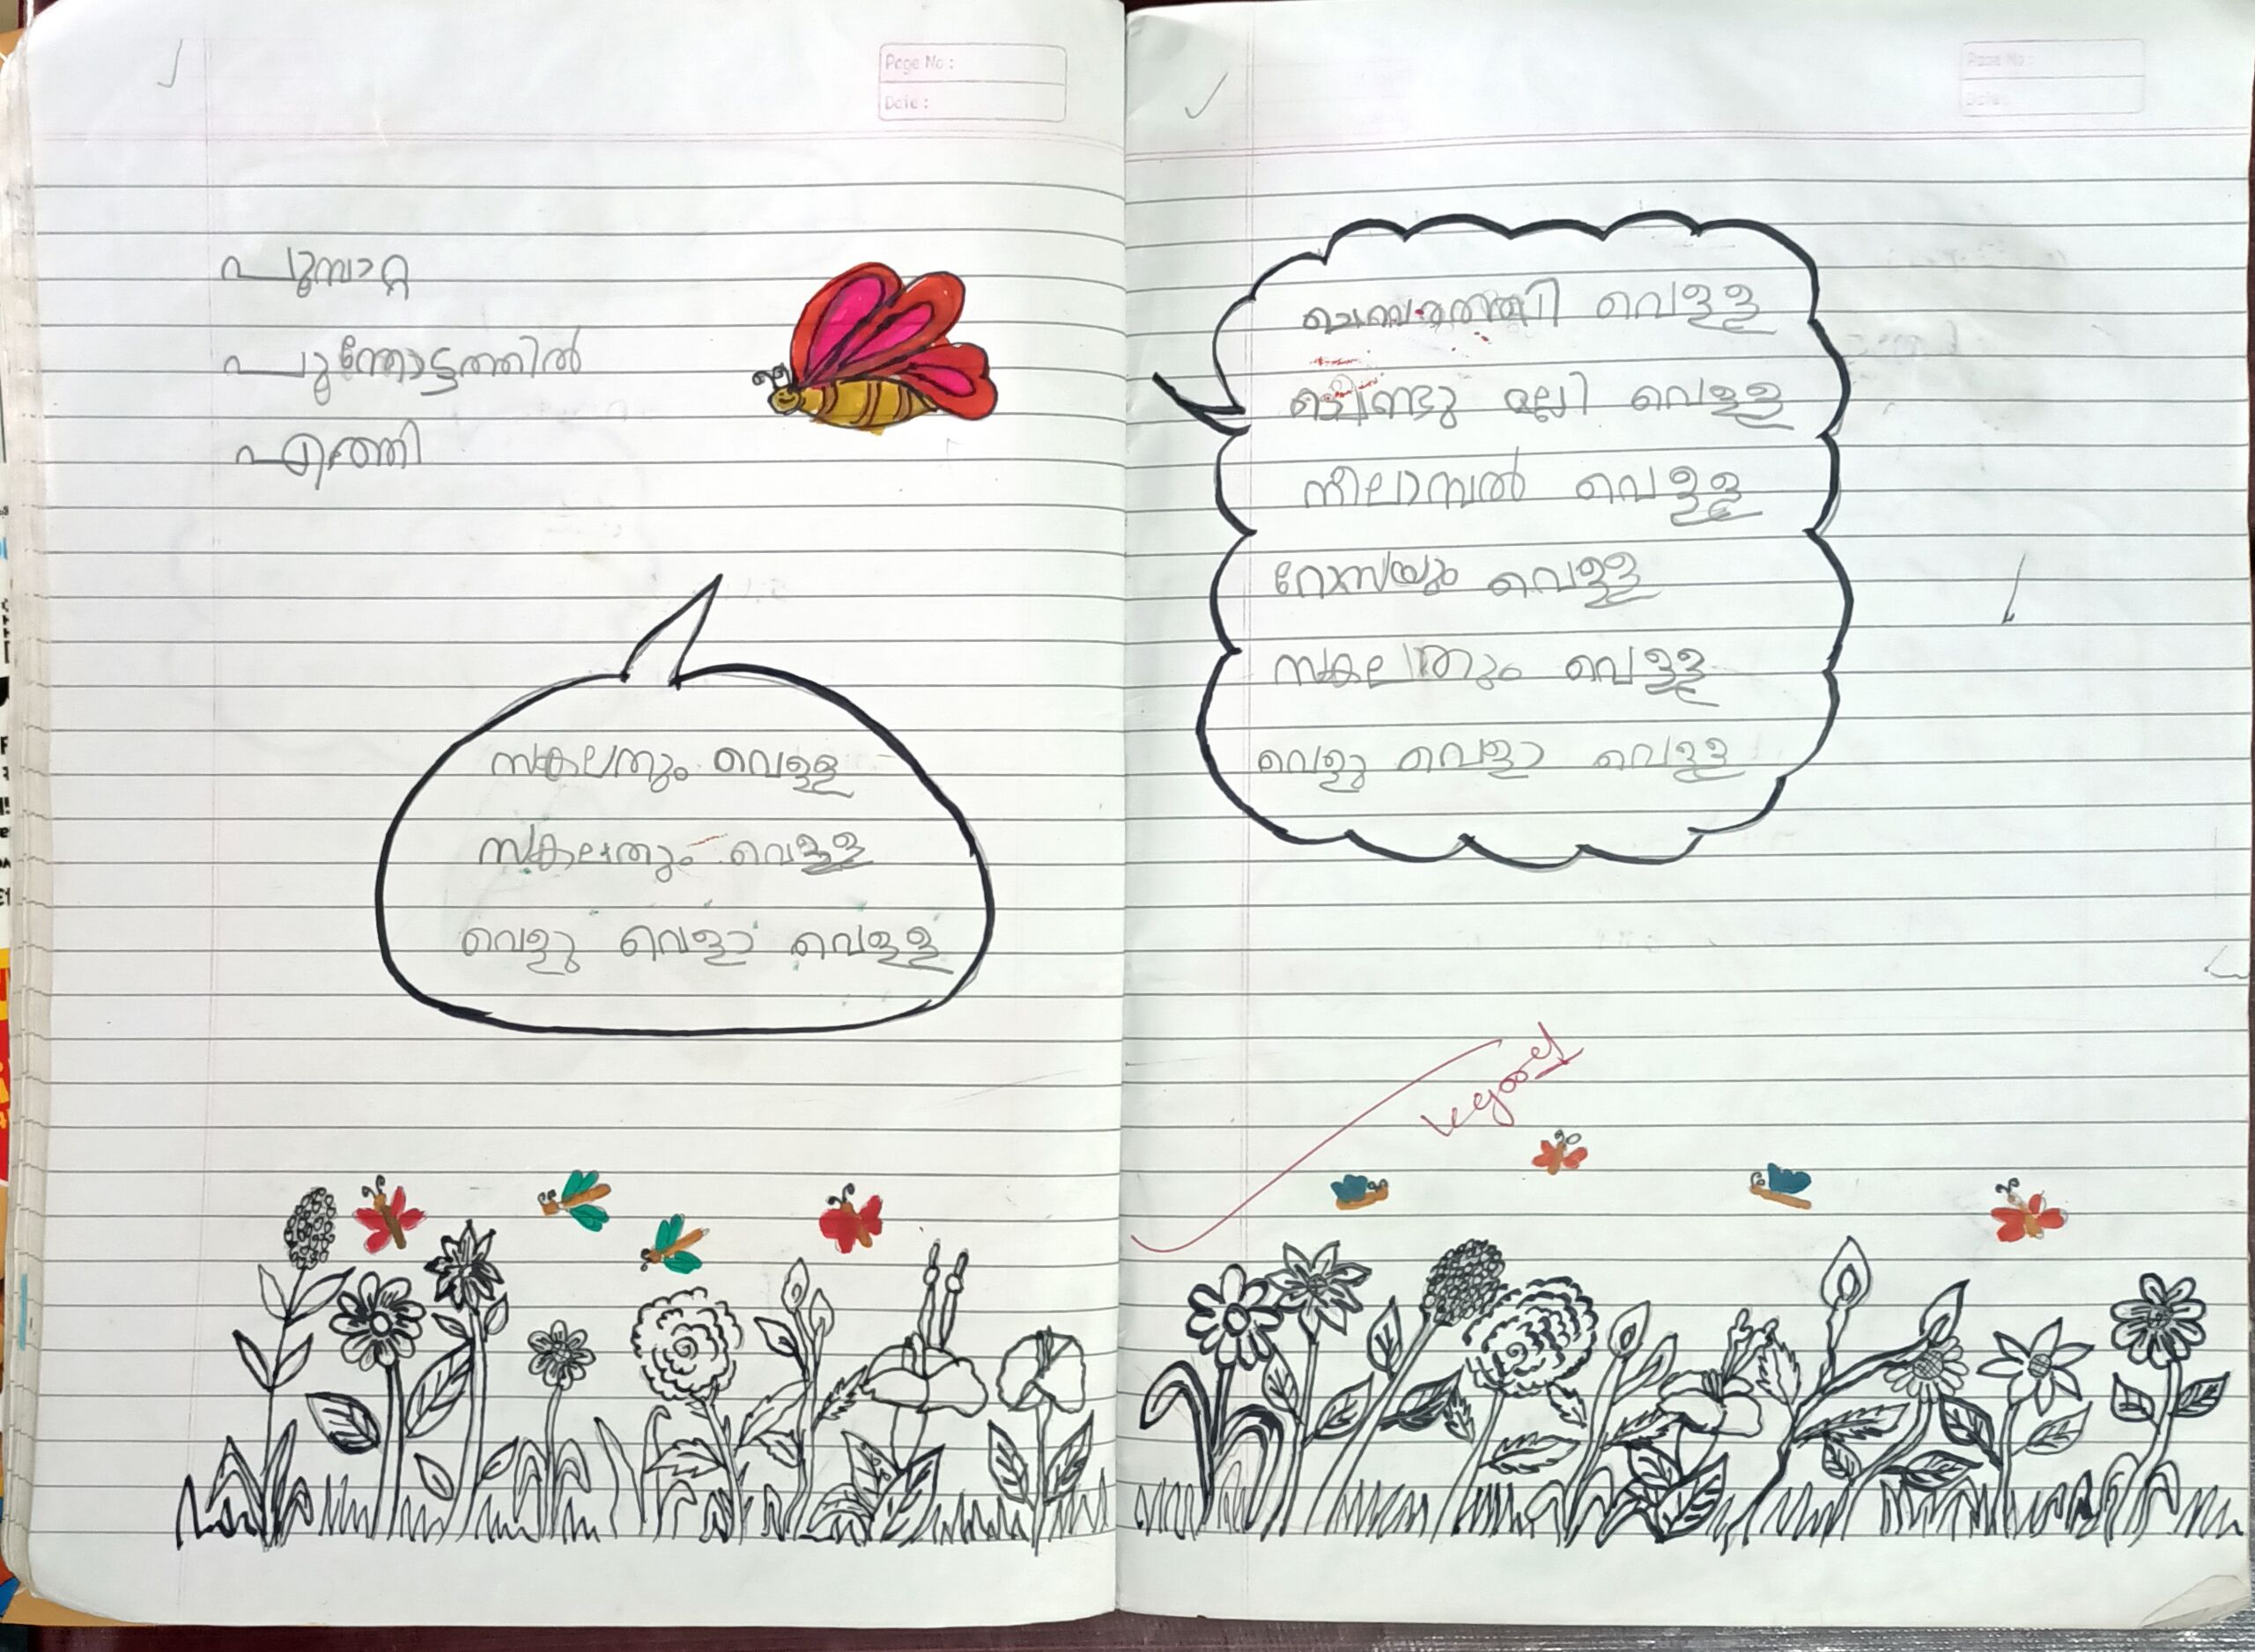 Page No :
Date :
പൂമ്പാറ്റ
പൂന്തോട്ടത്തിൽ
എത്തി
സകലതും വെള്ള
സകലതും വെള്ള
വെളു വെളാ വെള്ള
Page No :
Date :
ചെമ്പരത്തി വെള്ള
ചെണ്ടു മല്ലി വെള്ള
നീലാമ്പൽ വെള്ള
റോസയും വെള്ള
സകലതും വെള്ള
വെളു വെളാ വെള്ള
V. good